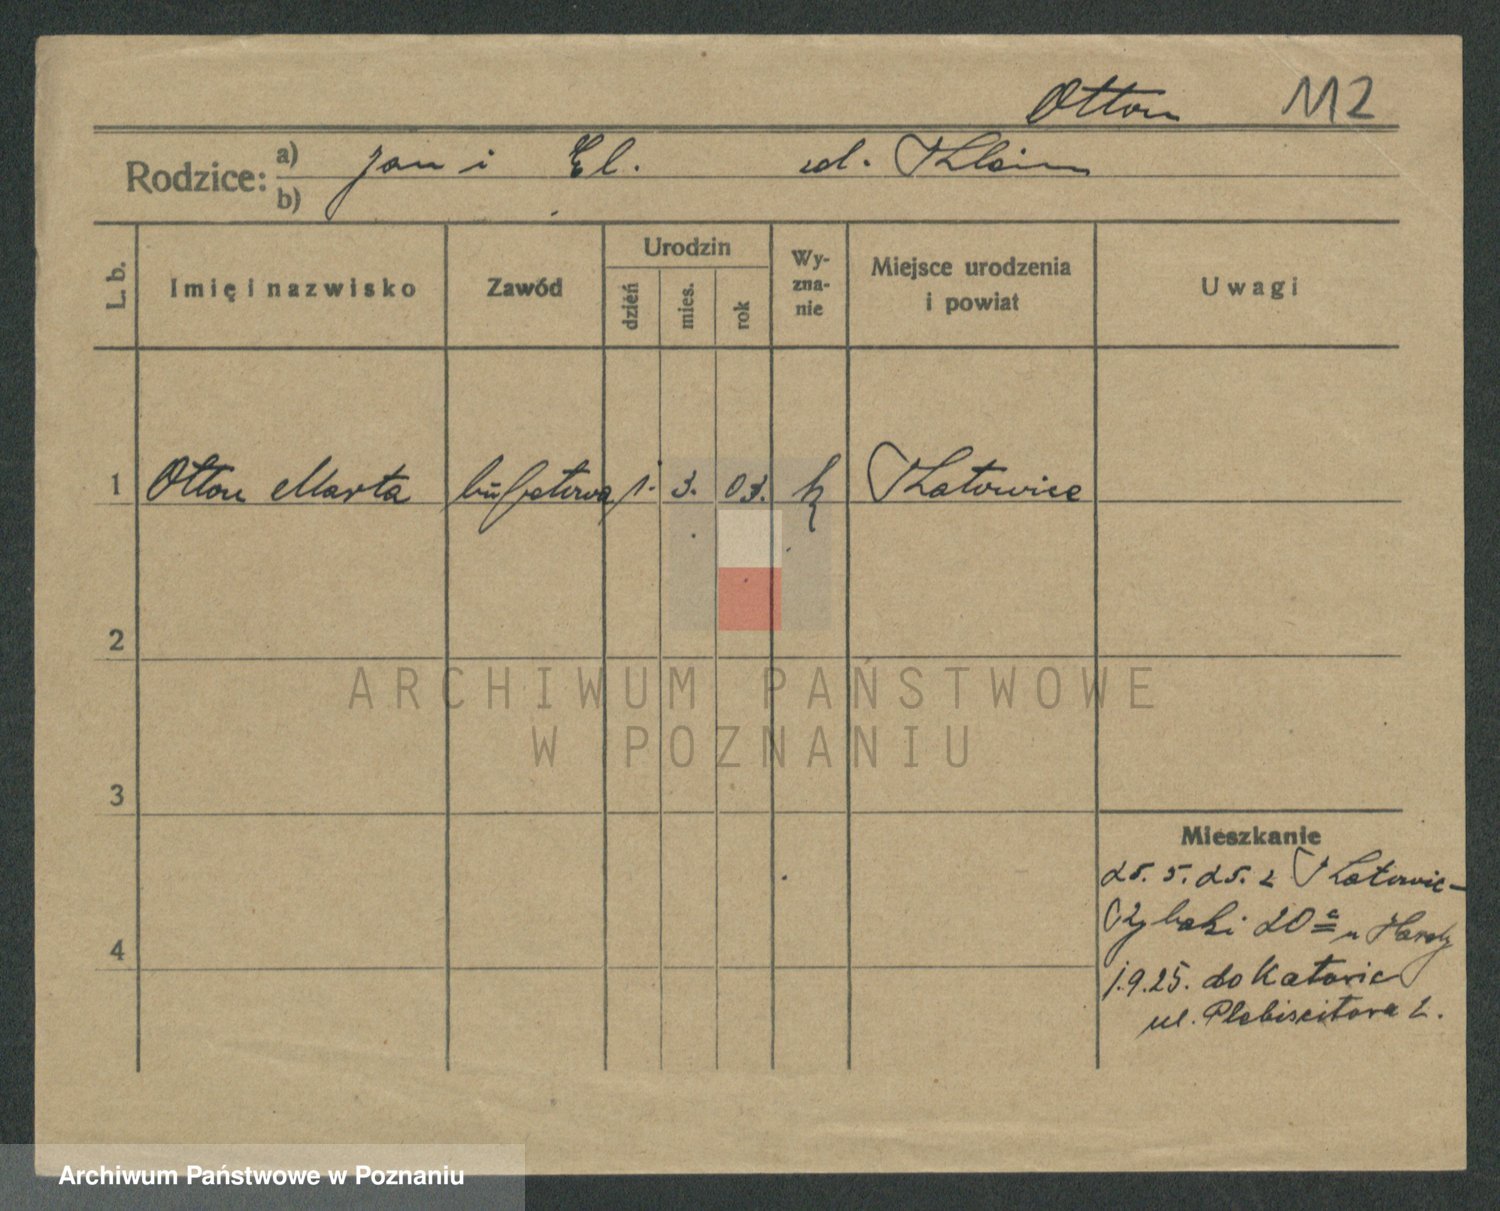 Otton M2
Rodzice: a) Jan i El. ud. Klein
b)
L. b. Imię i nazwisko Zawód Urodzin dzień mies. rok Wy-zna-nie Miejsce urodzenia i powiat Uwagi
1 Otton Marta bufetowa 1. 3. 03. k Katowice
2
ARCHIWUM PAŃSTWOWE
W POZNANIU
3
Mieszkanie
25. 5. 25. z Katowic
4 Rybaki 20a u
1.9.25. do Katowic
ul. Plebiscitowa 2.
Archiwum Państwowe w Poznaniu